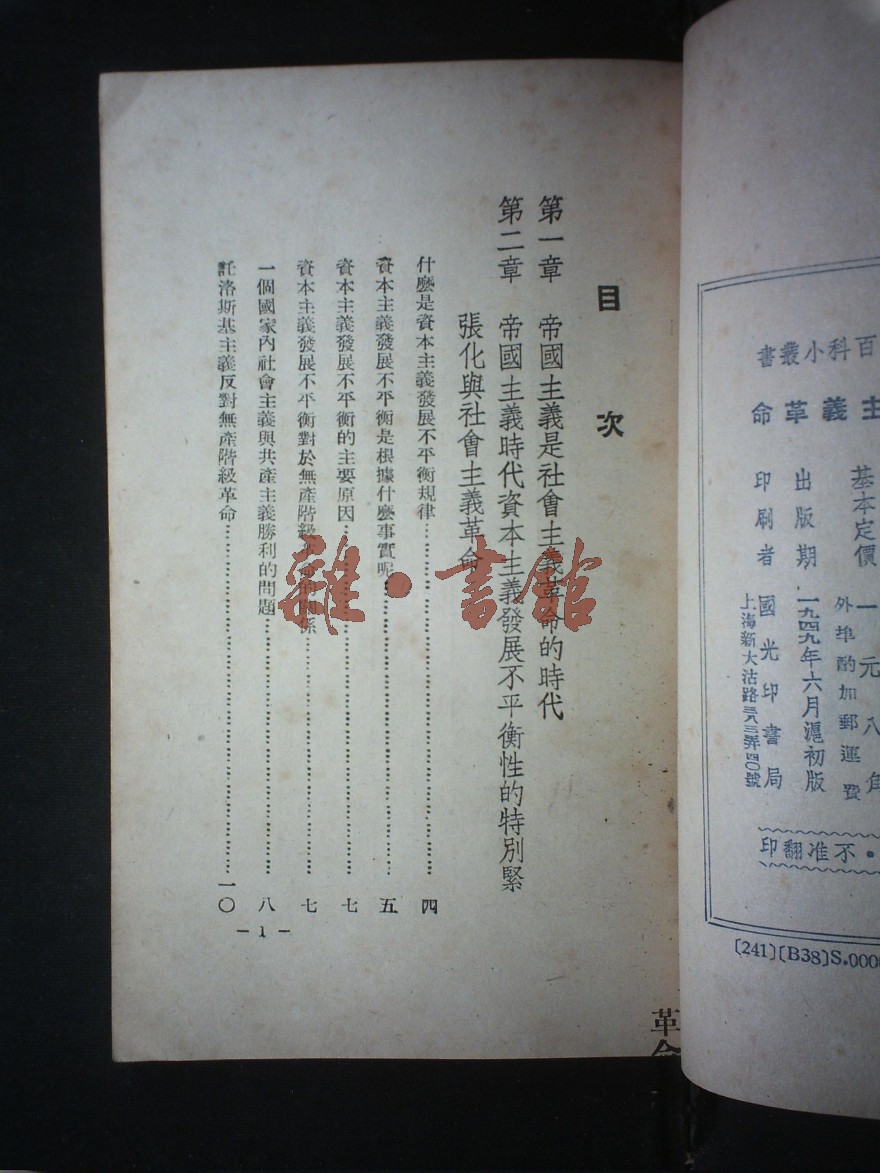 百科小叢書
主義革命
基本定價 一元八角
外埠酌加郵運費
出版期 一九四九年六月滬初版
印刷者 國光印書局
上海新大沽路三八三弄四〇號
・不准翻印
〔241〕〔B38〕S.000
目次
第一章 帝國主義是社會主義革命的時代
第二章 帝國主義時代資本主義發展不平衡性的特別緊
張化與社會主義革命
什麼是資本主義發展不平衡規律 四
資本主義發展不平衡是根據什麼事實呢 五
資本主義發展不平衡的主要原因 七
資本主義發展不平衡對於無產階級革命的關係 七
一個國家內社會主義與共產主義勝利的問題 八
託洛斯基主義反對無產階級革命 一〇
- 1 -
革命
雜・書館